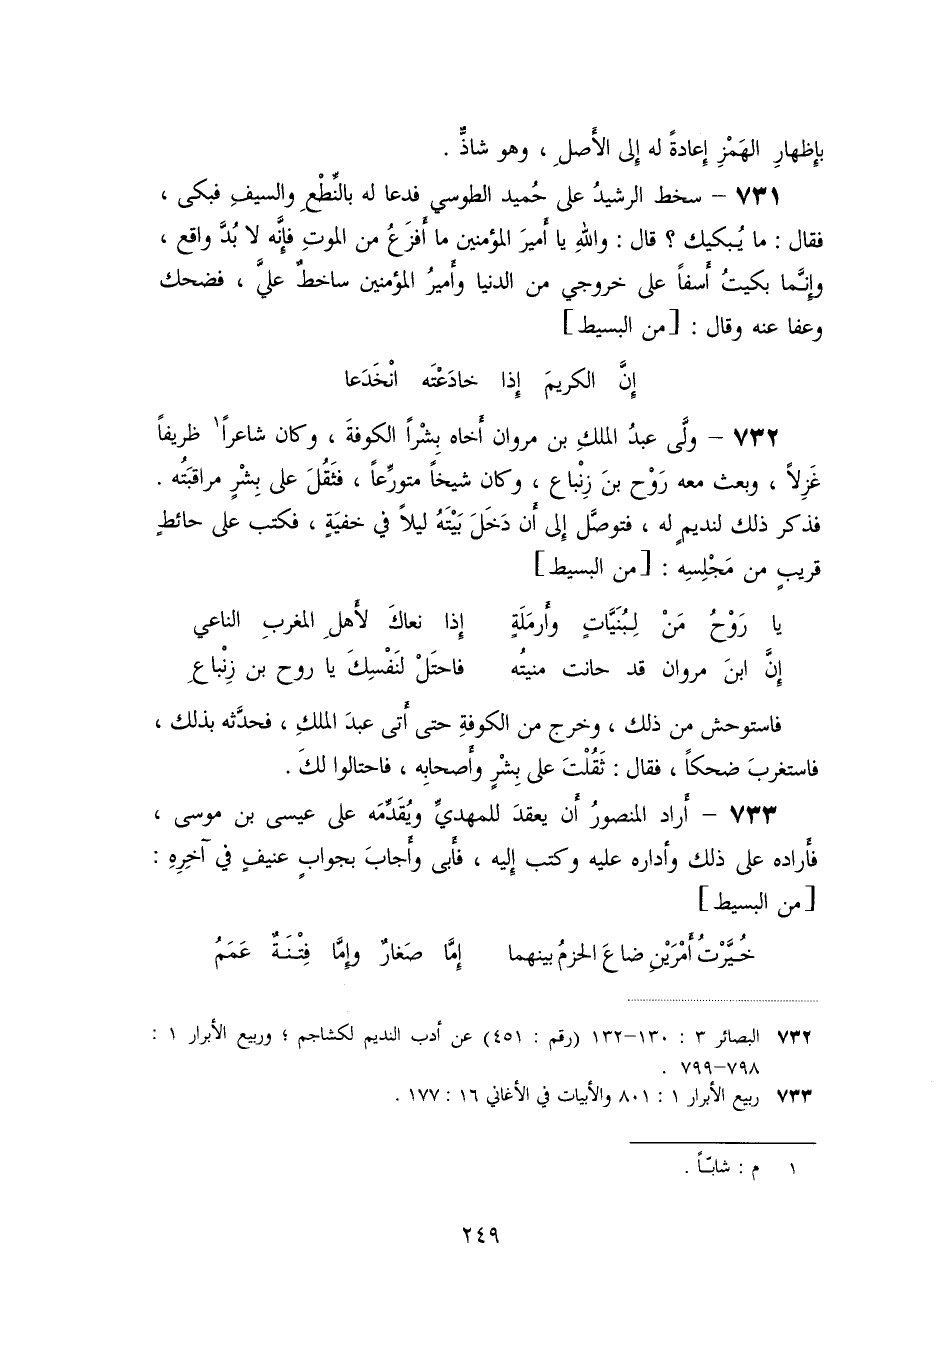 بإِظهارِ الهَمْزِ إِعادةً له إِلى الأَصلِ ، وهو شاذٌّ .
٧٣١ – سخط الرشيدُ على حُميد الطوسي فدعا له بالنِّطْعِ والسيفِ فبكى ،
فقال : ما يُبكيك ؟ قال : واللهِ يا أَميرَ المؤمنين ما أَفزَعُ من الموتِ فإِنَّه لا بُدَّ واقع ،
وإِنَّما بكيتُ أَسفاً على خروجي من الدنيا وأَميرُ المؤمنين ساخطٌ عليَّ ، فضحك
وعفا عنه وقال : [من البسيط]
إِنَّ الكريمَ إِذا خادَعْتَه انْخَدَعا
٧٣٢ – ولَّى عبدُ الملكِ بن مروان أَخاه بِشْراً الكوفةَ ، وكان شاعراً١ ظريفاً
غَزِلاً ، وبعث معه رَوْح بنَ زِنْباع ، وكان شيخاً متورِّعاً ، فثَقُلَ على بِشْرٍ مراقبَتُه .
فذكر ذلك لنديمٍ له ، فتوصَّل إِلى أَن دَخَلَ بَيْتَهُ ليلاً في خفيَةٍ ، فكتب على حائطٍ
قريبٍ من مَجْلِسِه : [من البسيط]
يا رَوْحُ مَنْ لِبُنَيَّاتٍ وأَرمَلَةٍ إِذا نعاكَ لأَهلِ المغربِ الناعي
إِنَّ ابنَ مروان قد حانت منيتُه فاحتَلْ لنَفْسِكَ يا روح بن زِنْباعِ
فاستوحش من ذلك ، وخرج من الكوفةِ حتى أَتى عبدَ الملكِ ، فحدَّثه بذلك ،
فاستغربَ ضحكاً ، فقال : ثَقُلْتَ على بِشْرٍ وأَصحابِه ، فاحتالوا لكَ .
٧٣٣ – أَراد المنصورُ أَن يعقدَ للمهديِّ ويُقَدِّمَه على عيسى بن موسى ،
فأَراده على ذلك وأداره عليه وكتب إِليه ، فأَبى وأَجابَ بجوابٍ عنيفٍ في آخِرِهِ :
[من البسيط]
خُيِّرْتُ أَمْرَيْنِ ضاعَ الحزمُ بينهما إِمَّا صَغارٌ وإِمَّا فِتْنَةٌ عَمَمُ
٧٣٢ البصائر ٣ : ١٣٠–١٣٢ (رقم : ٤٥١) عن أدب النديم لكشاجم ؛ وربيع الأبرار ١ :
٧٩٨–٧٩٩ .
٧٣٣ ربيع الأبرار ١ : ٨٠١ والأبيات في الأغاني ١٦ : ١٧٧ .
١ م : شابّاً .
٢٤٩